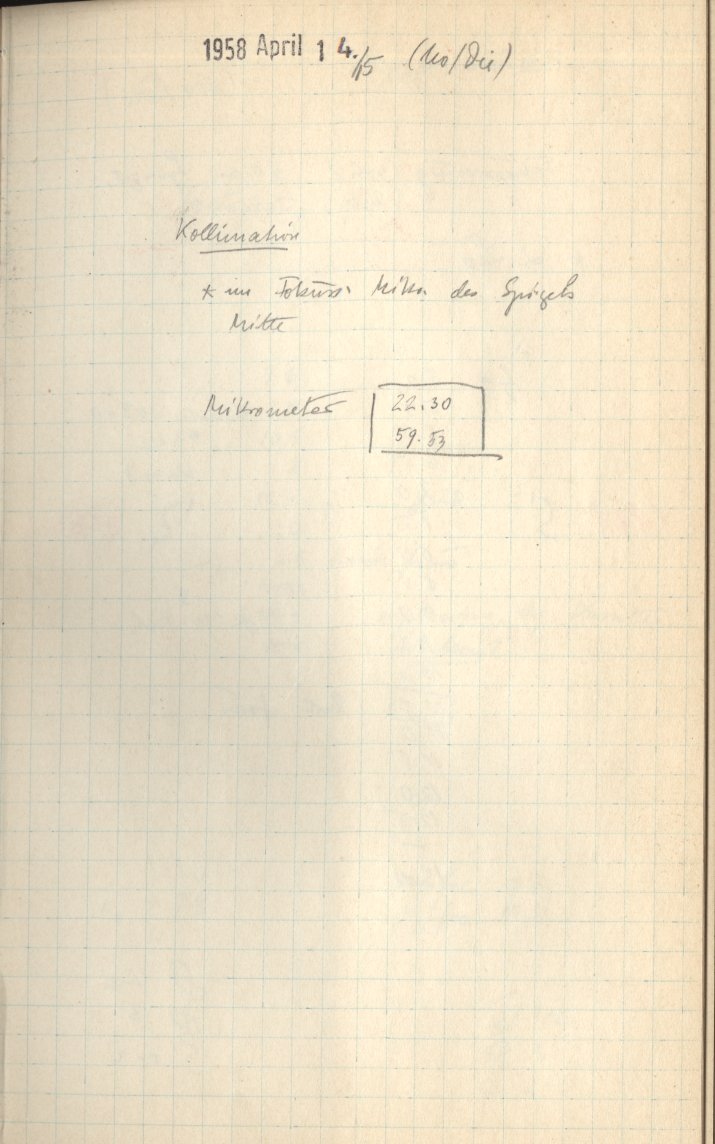 1958 April 14./15 (Mo/Die)
Kollimation
* im Fokus: Mitte des Spiegels
Mitte
Mikrometer 22.30
59.53